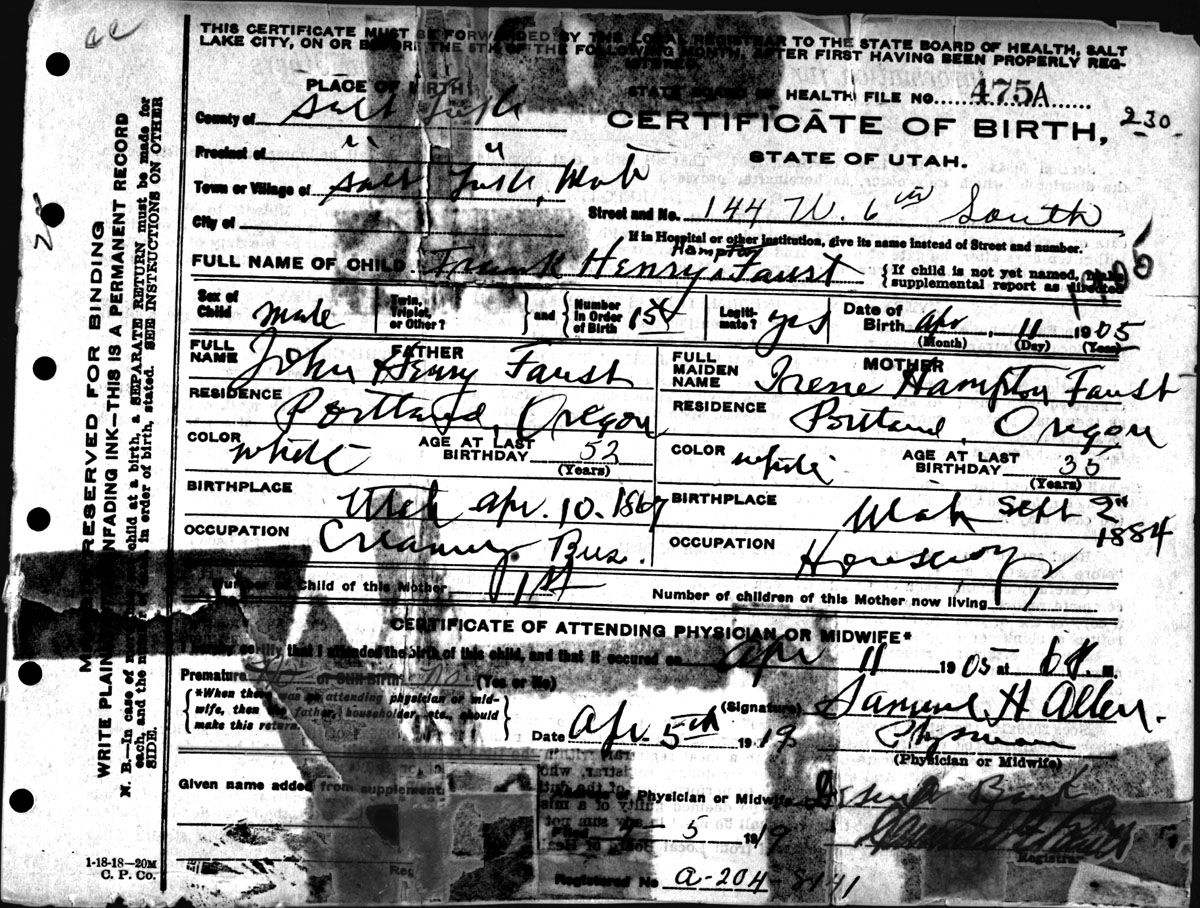 THIS CERTIFICATE MUST BE FORWARDED BY THE LOCAL REGISTRAR TO THE STATE BOARD OF HEALTH, SALT
LAKE CITY, ON OR BEFORE THE 5TH OF THE FOLLOWING MONTH, AFTER FIRST HAVING BEEN PROPERLY REG-
ISTERED.
PLACE OF BIRTH
STATE BOARD OF HEALTH FILE NO. 475A
County of Salt Lake
CERTIFICATE OF BIRTH, 230
Precinct of " "
STATE OF UTAH.
Town or Village of Salt Lake, Utah
Street and No. 144 W. 6th South
City of
If in Hospital or other institution, give its name instead of Street and number.
Hampton
FULL NAME OF CHILD Frank Henry Faust
{If child is not yet named, make
supplemental report as directed
Sex of Child male
Twin, Triplet, or Other?
and
Number in Order of Birth 1st
Legiti-mate? yes
Date of Birth Apr 11 1905
(Month) (Day) (Year)
FATHER
FULL NAME John Henry Faust
MOTHER
FULL MAIDEN NAME Irene Hampton Faust
RESIDENCE Portland, Oregon
RESIDENCE Portland, Oregon
COLOR white AGE AT LAST BIRTHDAY 52 (Years)
COLOR white AGE AT LAST BIRTHDAY 35 (Years)
BIRTHPLACE Utah Apr. 10. 1867
BIRTHPLACE Utah Sept 2nd 1884
OCCUPATION Creamery Bus.
OCCUPATION
Number of Child of this Mother 1st
Number of children of this Mother now living 1
CERTIFICATE OF ATTENDING PHYSICIAN OR MIDWIFE*
I hereby certify, that I attended the birth of this child, and that it occured on Apr 11 1905 at M.
Premature No or Still Birth No (Yes or No)
*When there was no attending physician or mid-
wife, then the father, householder, etc., should
make this return.
(Signature) Samuel H Allen.
Date Apr. 5th 1919
Physician
(Physician or Midwife)
Given name added from supplement
Physician or Midwife
Filed 4-5 1919
Registrar
Registered No A-204-
1-18-18—20M
C. P. Co.
MARGIN RESERVED FOR BINDING
WRITE PLAINLY UNFADING INK—THIS IS A PERMANENT RECORD
N. B.—In case of more child at a birth, a SEPARATE RETURN must be made for
each, and the number in order of birth, stated. SEE INSTRUCTIONS ON OTHER
SIDE.